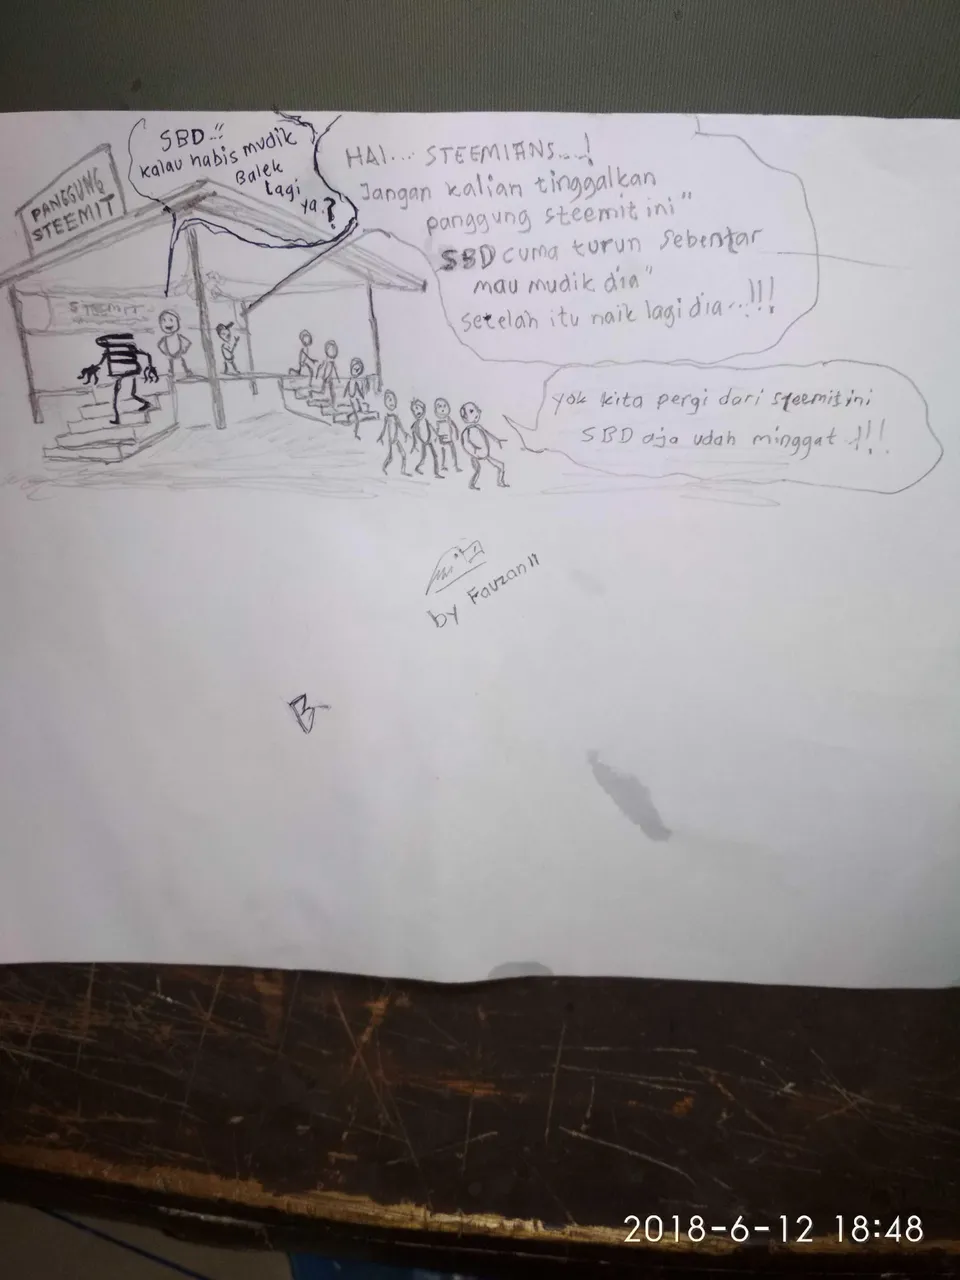 PANGGUNG
STEEMIT
SBD..!!
kalau habis mudik
Balek
lagi
ya.?
HAI... STEEMIANS...!
Jangan kalian tinggalkan
panggung steemit ini"
SBD cuma turun sebentar
mau mudik dia"
setelah itu naik lagi dia...!!!
STEEMIT
yok kita pergi dari steemit ini
SBD aja udah minggat !!!
by Fauzan11
B
2018-6-12 18:48